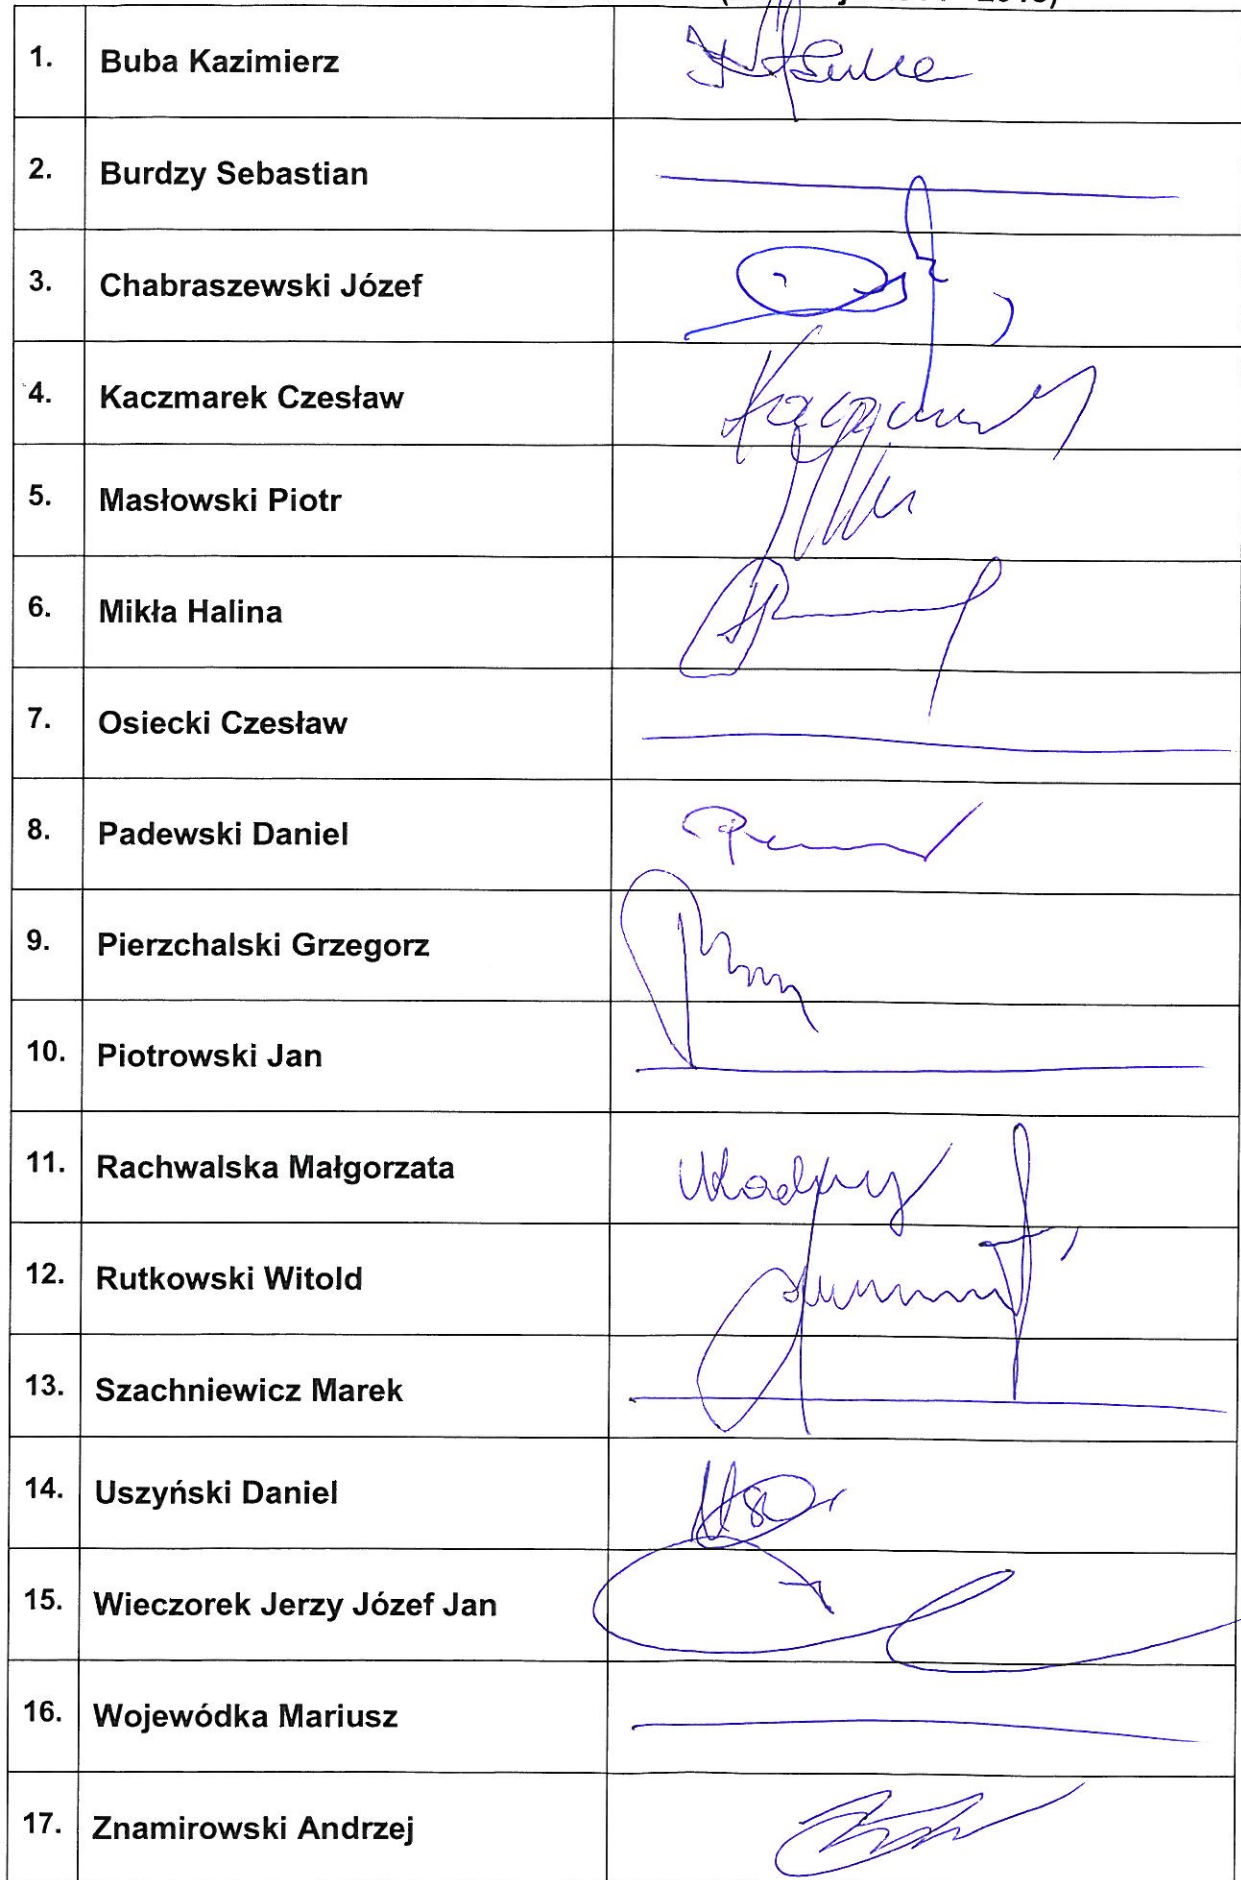 1. Buba Kazimierz
2. Burdzy Sebastian
3. Chabraszewski Józef
4. Kaczmarek Czesław
5. Masłowski Piotr
6. Mikła Halina
7. Osiecki Czesław
8. Padewski Daniel
9. Pierzchalski Grzegorz
10. Piotrowski Jan
11. Rachwalska Małgorzata
12. Rutkowski Witold
13. Szachniewicz Marek
14. Uszyński Daniel
15. Wieczorek Jerzy Józef Jan
16. Wojewódka Mariusz
17. Znamirowski Andrzej